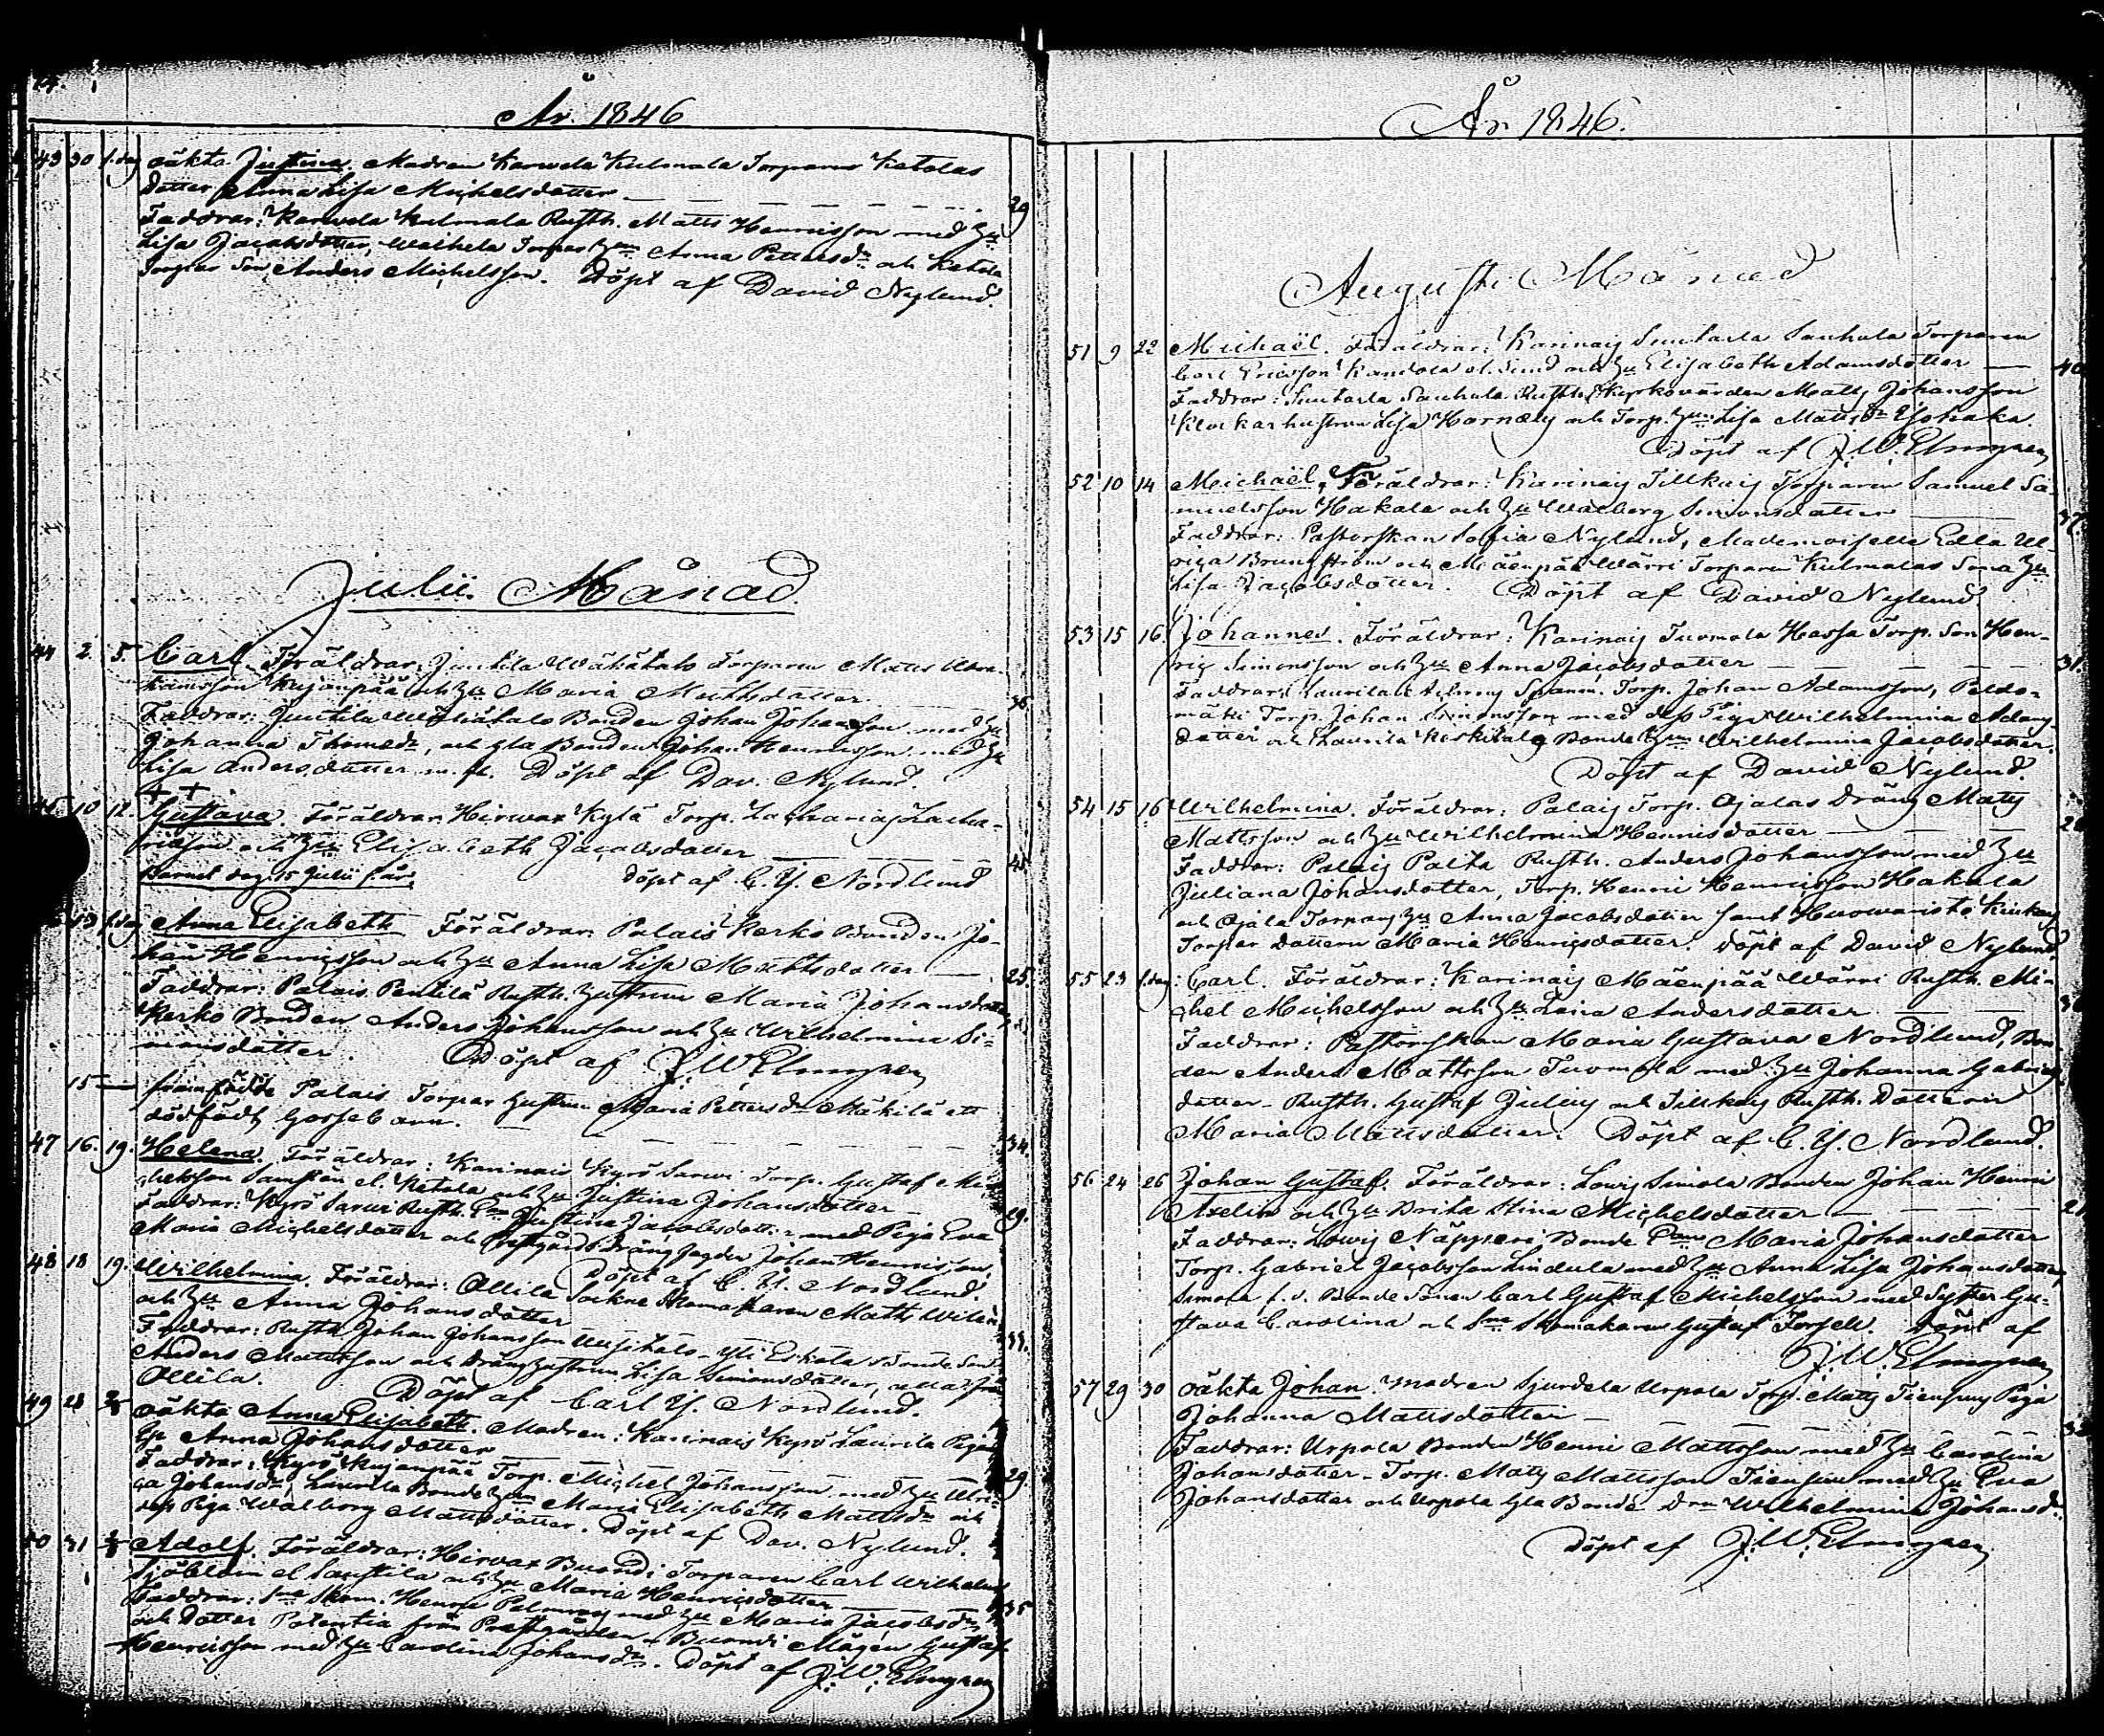 År 1846
43 30 s.dag oäkta Justina. Modren Karvela Kulmala Torparens Ketolas
dotter Anna Lisa Michelsdotter 29
Faddrar: Karvela Kulmala Rusth. Matts Henricsson med Hu
Lisa Jacobsdotter, Torpar Anna Pettersdr och Ketola
Torpar Son Anders Michelsson. Döpt af David Nylund.
Julii Månad.
44 2. 5. Carl. Föräldrar: Juntila Wähätalo Torparen Matts Abra-
hamsson Kujanpää och Hu Maria Mattsdotter
Faddrar: Juntila Wähätalo Bonden Johan Johansson med Hu
Johanna Thomedr, och gla Bonden Johan Henricsson med Hu
Lisa Andersdotter m. fl. Döpt af Dav. Nylund.
45 10 12. Gustava. Föräldrar: Hirvax Kylä Torp. Zacharias Zacha-
riasson och Hu Elisabeth Jacobsdotter 45
Barnet dog 15 Julii s. år. Döpt af C. Y. Nordlund
13 s.dag Anna Elisabeth Föräldrar: Palais Kerko Bonden Jo-
han Henricsson och Hu Anna Lisa Mattsdotter 25.
Faddrar: Palais Pentilä Rusth. Hustrun Maria Johansdotter,
Kerko Bonden Anders Johansson och Hu Wilhelmina Si-
monsdotter. Döpt af J. W. Elmgren
15 framfödde Palais Torpar Hustrun Maria Pettersdr Mäkilä ett
dödfödt Gossebarn. 34.
47 16. 19. Helena. Föräldrar: Karinais Kyrö Sarvi Torp. Gustaf Mi-
chelsson el. Ketola och Hu Justina Johansdotter 29.
Faddrar: Kyrö Sarvi Rusth. Justina Jacobsdotter med Piga Eva
Maria Michelsdotter och Prestgårds Dräng Johan Henricsson.
Döpt af C. Y. Nordlund
48 18 19. Wilhelmina. Föräldrar: Ollila Sockne Skomakaren Matts Wilén
och Hu Anna Johansdotter
Faddrar: Rusth. Johan Johansson Uusitalo, Yli Eskola Bonde Son
Anders Mattsson och Dräng Hustrun Lisa Simonsdotter, alla från
Ollila. Döpt af Carl Y. Nordlund.
49 28 oäkta Anna Elisabeth. Modren: Karinais Kyrö Laurila Pigan
Anna Johansdotter 29.
Faddrar: Kyrö Kujanpää Torp. Michel Johansson med Hu Ulri-
ca Johansdr, Laurila Bonde Maria Elisabeth Mattsdr och
dess Piga Walborg Mattsdotter. Döpt af Dav. Nylund.
50 31 Adolf. Föräldrar: Hirvax Buondi Torparen Carl Wilhelm
Sjöblom el. och Hu Maria Henricsdotter 35
Faddrar: Skom. Henric Palmroos med Hu Maria Jacobsdr
och Dotter Potentia från Prestgården, Buondi Mågen Gustaf
Henricsson med Hu Carolina Johansdr. Döpt af J. W. Elmgren
År 1846.
Augusti Månad
51 9 22 Michaël. Föräldrar: Karinais Suutarla Sauhula Torparen
Carl Ericsson Kandola el. Sund och Hu Elisabeth Adamsdotter 40
Faddrar: Suutarla Sauhula Rusth. Kyrkovärden Matts Johansson
Klockarhustrun Lisa Hornæus och Torp. Lisa Mattsdr
Döpt af J. W. Elmgren
52 10 14 Michaël. Föräldrar: Karinais Tillkais Torparen Samuel Sa-
muelsson Hakala och Hu Walborg Simonsdotter 37.
Faddrar: Pastorskan Sofia Nylund, Mademoiselle Edla Ul-
rica Brunström och Mäenpää Wärri Torparen Kulmalas Sona Hu
Lisa Jacobsdotter. Döpt af David Nylund.
53 15 16. Johannes. Föräldrar: Karinais Tuomola Hassa Torp. Son Hen-
ric Simonsson och Hu Anna Jacobsdotter 31.
Faddrar: Laurila Spanm. Torp. Johan Adamsson, Peldo-
mäki Torp. Johan Simonsson med dess Piga Wilhelmina Adams-
dotter och Laurila Keskitalo Bonde Wilhelmina Jacobsdotter.
Döpt af David Nylund.
54 15 16 Wilhelmina. Föräldrar: Palais Torp. Ojalas Dräng Matts
Mattsson och Hu Wilhelmina Henricsdotter
Faddrar: Palais Paita Rusth. Anders Johansson med Hu
Juliana Johansdotter, Torp. Henric Henricsson Hakala
och Ojala Torpars Hu Anna Jacobsdotter samt Huovaristo
Torpar Dottern Maria Henricsdotter. Döpt af David Nylund.
55 23 s.dag. Carl. Föräldrar: Karinais Mäenpää Wärri Rusth. Mi-
chel Michelsson och Hu Lena Andersdotter
Faddrar: Pastorskan Maria Gustava Nordlund, Bon-
den Anders Mattsson Tuomola med Hu Johanna Gabriels-
dotter, Rusth. Gustaf Julius och Tillkais Rusth. Dottern
Maria Mattsdotter. Döpt af C. Y. Nordlund.
56 24 26 Johan Gustaf. Föräldrar: Lowis Simola Bonden Johan Henric
Axelin och Hu Brita Stina Michelsdotter
Faddrar: Lowis Näpperi Bonde Maria Johansdotter
Torp. Gabriel Jacobsson Lindula med Hu Anna Lisa Johansdotter,
Simola f. d. Bonde Sonen Carl Gustaf Michelsson med Syster Gu-
stava Carolina och Skomakaren Gustaf Forsell. Döpt af
J. W. Elmgren
57 29 30 oäkta Johan. Modren Sjundela Urpola Torp. Matts Piga
Johanna Mattsdotter
Faddrar: Urpola Bonden Henric Mattsson med Hu Carolina
Johansdotter, Torp. Matts Mattsson med Hu Eva
Johansdotter och Urpola gla Bonde Wilhelmina Johansdr.
Döpt af J. W. Elmgren